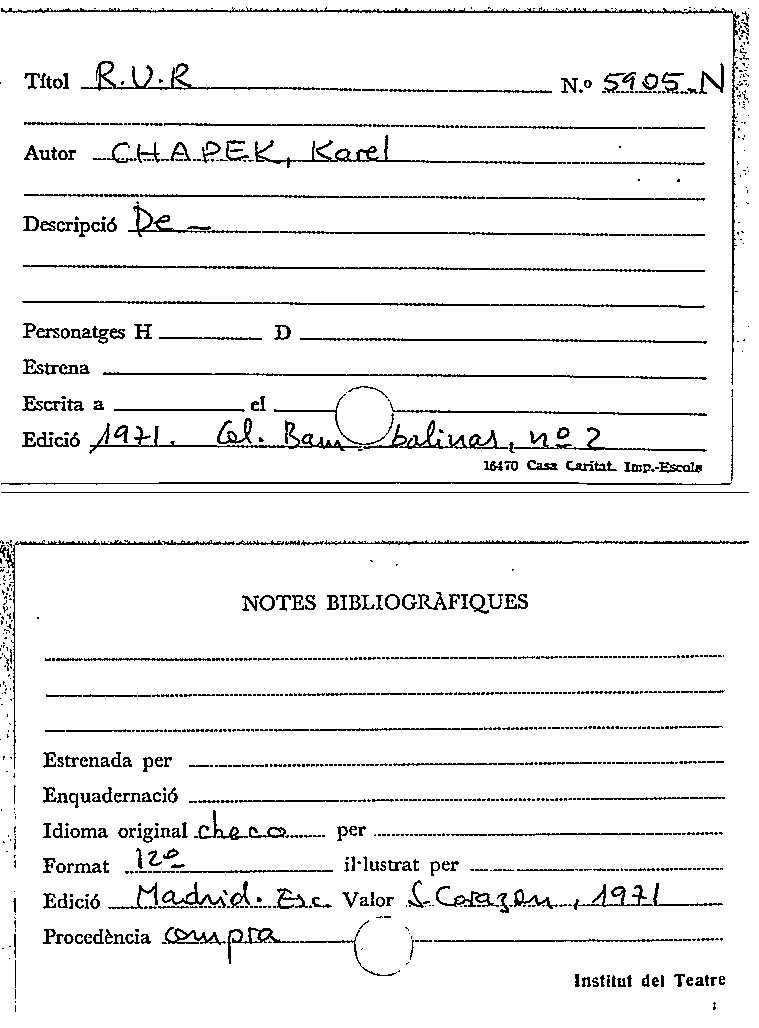 Títol R.U.R N.º 5905-N
Autor CHAPEK, Karel
Descripció De —
Personatges H D
Estrena
Escrita a el
Edició 1971. Col. Bambalinas, nº 2
16470 Casa Caritat. Imp.-Escola
NOTES BIBLIOGRÀFIQUES
Estrenada per
Enquadernació
Idioma original checo per
Format 12º il·lustrat per
Edició Madrid. Esc. Valor S. Corazon, 1971
Procedència compra
Institut del Teatre